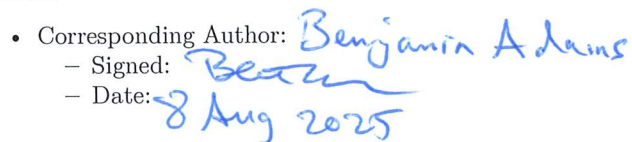 • Corresponding Author: Benjamin Adams
– Signed:
– Date: 8 Aug 2025